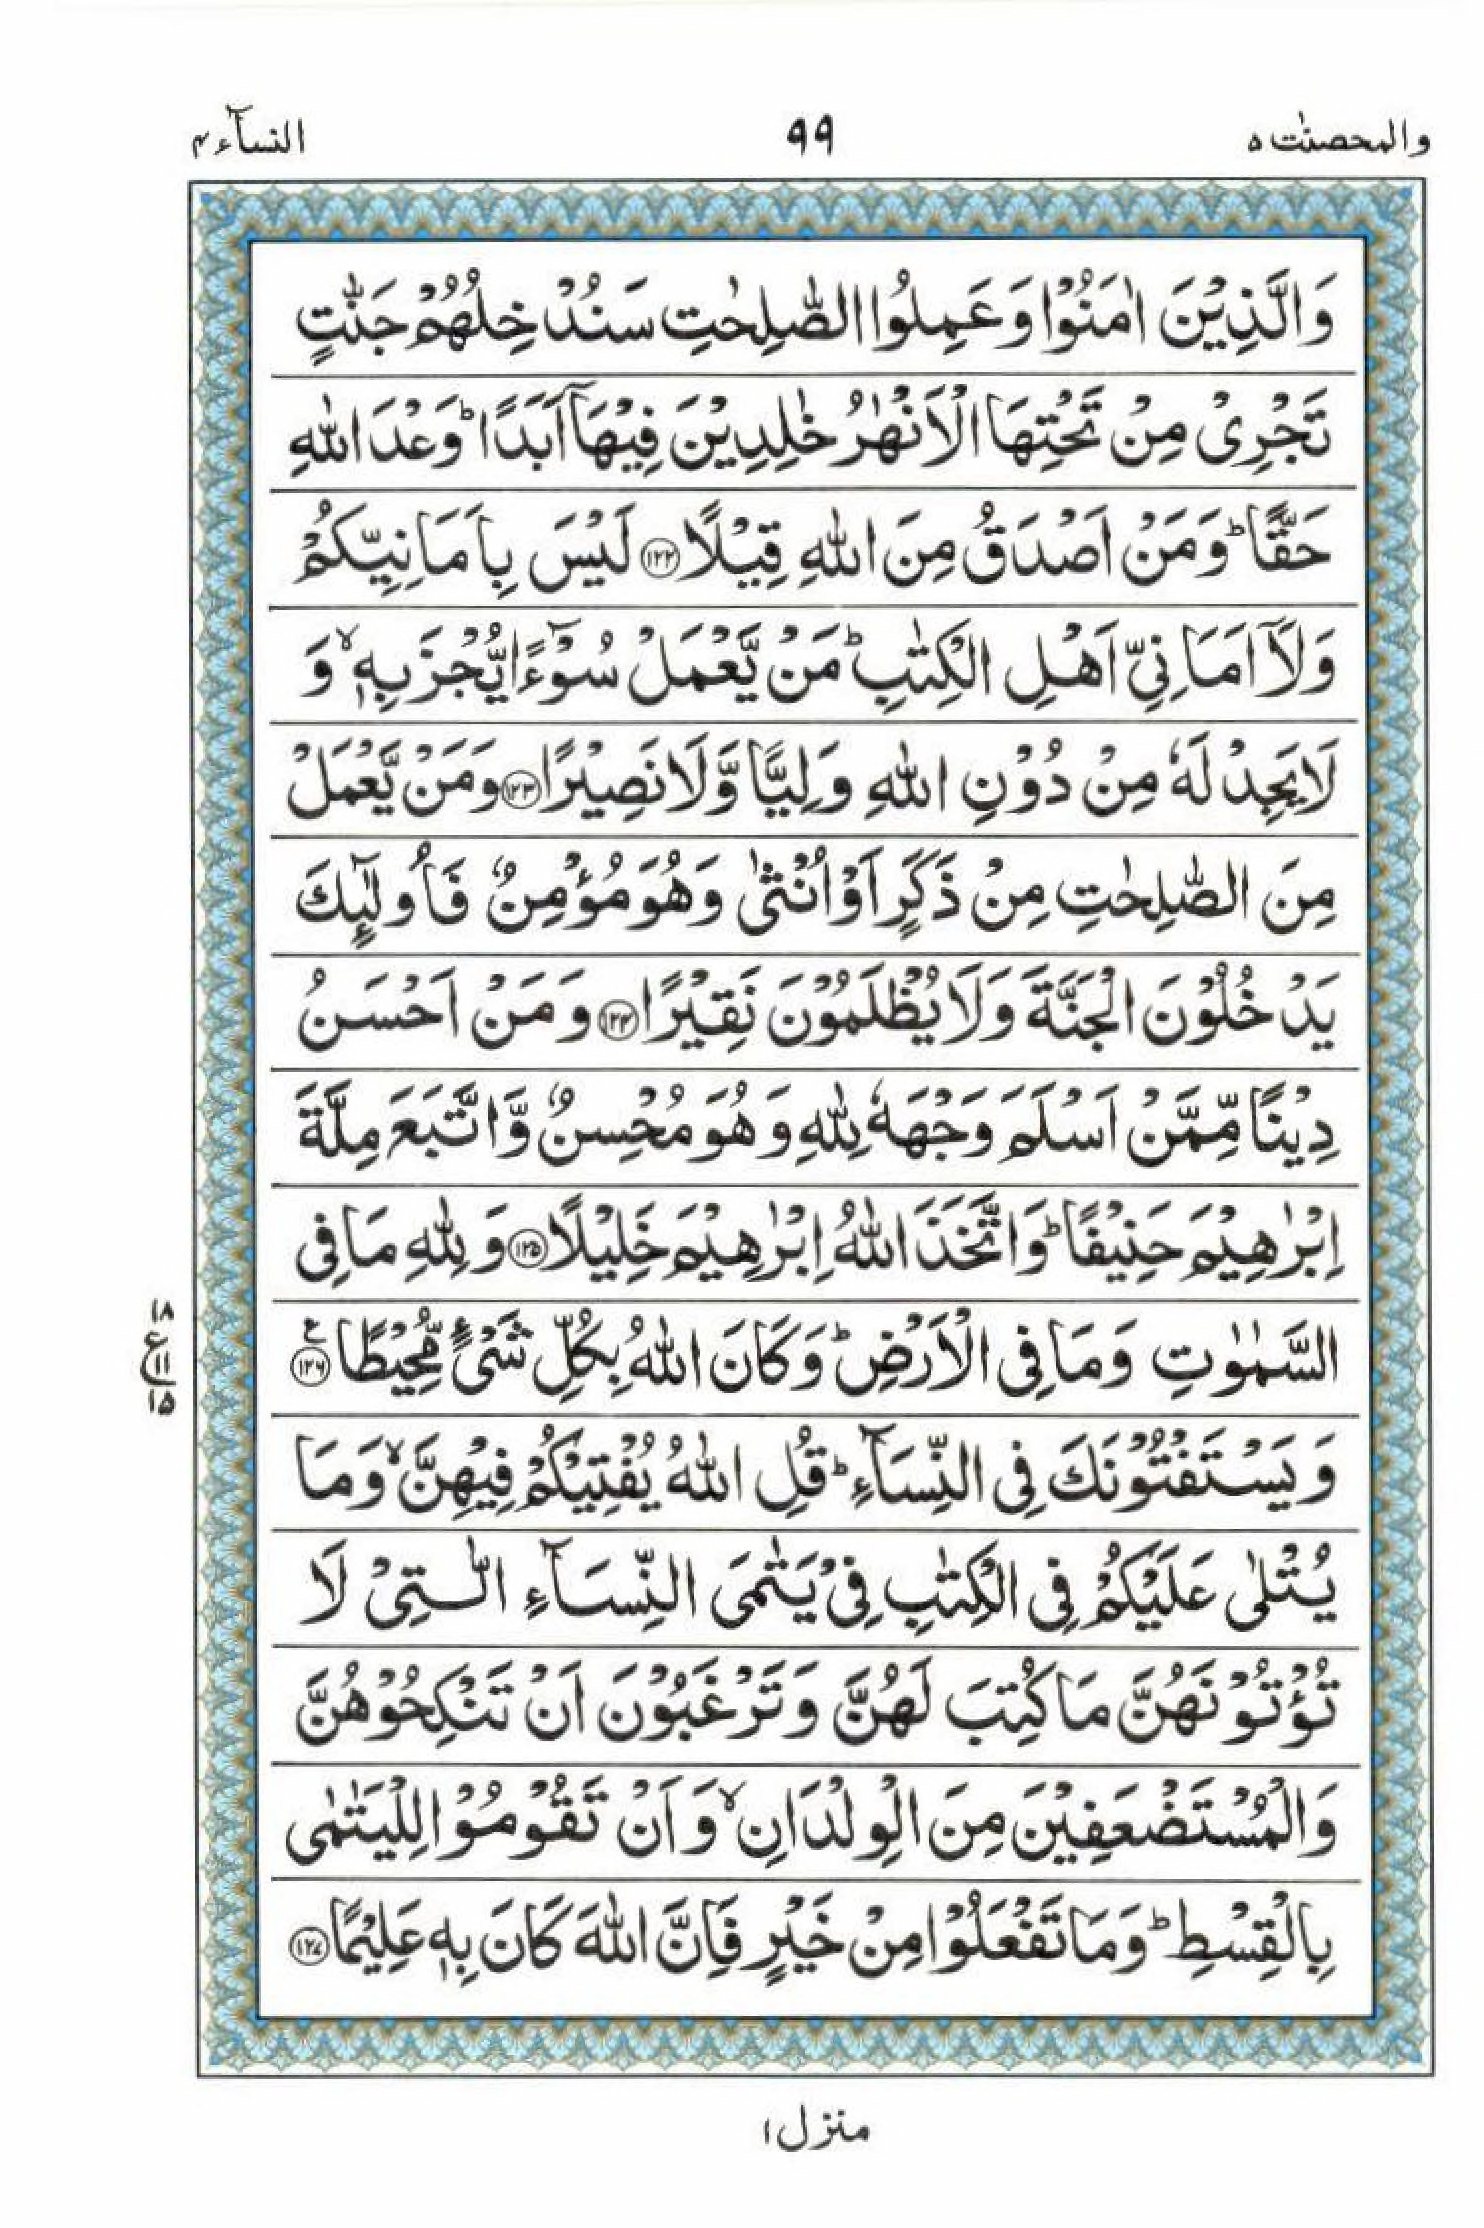 والمحصنٰت ۵
۹۹
النسآء ۴
وَالَّذِيْنَ اٰمَنُوْا وَعَمِلُوا الصّٰلِحٰتِ سَنُدْخِلُهُمْ جَنّٰتٍ
تَجْرِىْ مِنْ تَحْتِهَا الْاَنْهٰرُ خٰلِدِيْنَ فِيْهَآ اَبَدًا ؕ وَعْدَ اللّٰهِ
حَقًّا ؕ وَمَنْ اَصْدَقُ مِنَ اللّٰهِ قِيْلًا ﴿۱۲۲﴾ لَيْسَ بِاَمَانِيِّكُمْ
وَلَآ اَمَانِىِّ اَهْلِ الْكِتٰبِ ؕ مَنْ يَّعْمَلْ سُوْٓءًا يُّجْزَ بِهٖ ۙ وَ
لَا يَجِدْ لَهٗ مِنْ دُوْنِ اللّٰهِ وَلِيًّا وَّلَا نَصِيْرًا ﴿۱۲۳﴾ وَمَنْ يَّعْمَلْ
مِنَ الصّٰلِحٰتِ مِنْ ذَكَرٍ اَوْ اُنْثٰى وَهُوَ مُؤْمِنٌ فَاُولٰٓئِكَ
يَدْخُلُوْنَ الْجَنَّةَ وَلَا يُظْلَمُوْنَ نَقِيْرًا ﴿۱۲۴﴾ وَمَنْ اَحْسَنُ
دِيْنًا مِّمَّنْ اَسْلَمَ وَجْهَهٗ لِلّٰهِ وَهُوَ مُحْسِنٌ وَّاتَّبَعَ مِلَّةَ
اِبْرٰهِيْمَ حَنِيْفًا ؕ وَاتَّخَذَ اللّٰهُ اِبْرٰهِيْمَ خَلِيْلًا ﴿۱۲۵﴾ وَلِلّٰهِ مَا فِى
السَّمٰوٰتِ وَمَا فِى الْاَرْضِ ؕ وَكَانَ اللّٰهُ بِكُلِّ شَىْءٍ مُّحِيْطًا ﴿۱۲۶﴾ ع
۱۸
ع
۱۱
۱۵
وَيَسْتَفْتُوْنَكَ فِى النِّسَآءِ ؕ قُلِ اللّٰهُ يُفْتِيْكُمْ فِيْهِنَّ ۙ وَمَا
يُتْلٰى عَلَيْكُمْ فِى الْكِتٰبِ فِىْ يَتٰمَى النِّسَآءِ الّٰتِىْ لَا
تُؤْتُوْنَهُنَّ مَا كُتِبَ لَهُنَّ وَتَرْغَبُوْنَ اَنْ تَنْكِحُوْهُنَّ
وَالْمُسْتَضْعَفِيْنَ مِنَ الْوِلْدَانِ ۙ وَاَنْ تَقُوْمُوْا لِلْيَتٰمٰى
بِالْقِسْطِ ؕ وَمَا تَفْعَلُوْا مِنْ خَيْرٍ فَاِنَّ اللّٰهَ كَانَ بِهٖ عَلِيْمًا ﴿۱۲۷﴾
منزل ۱